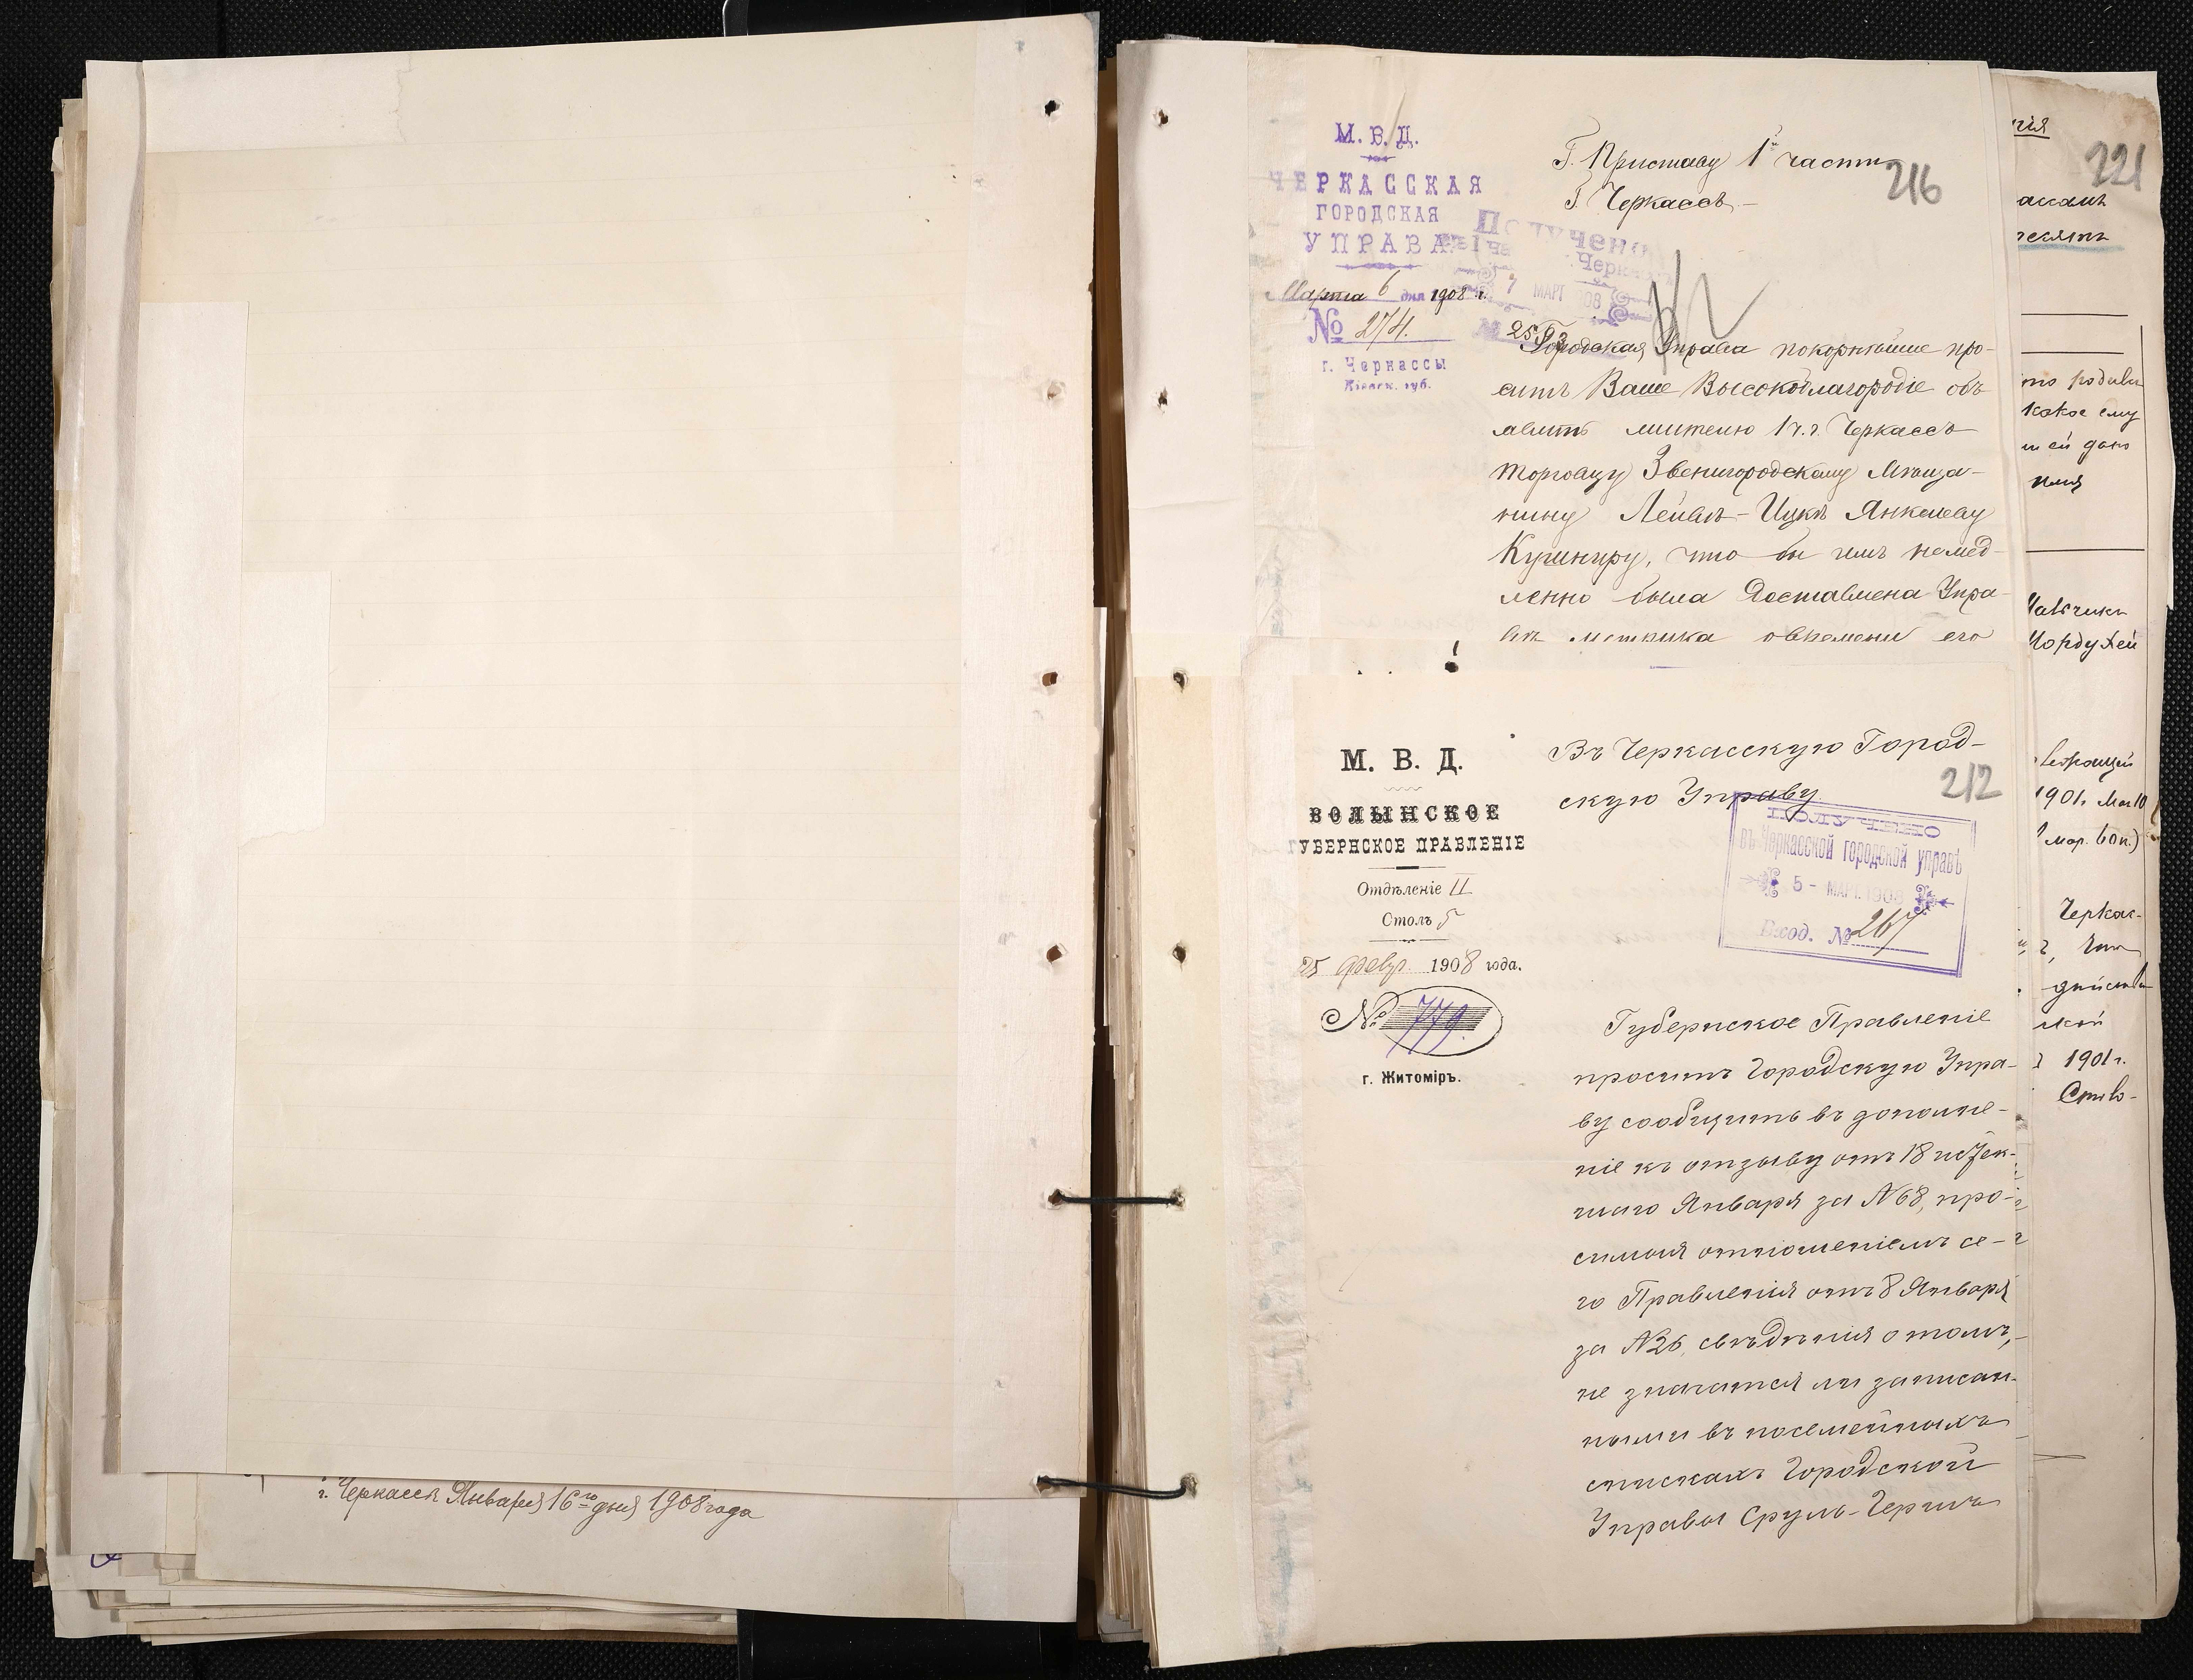 г. Черкассы Января 16го дня 1908 года
М. В. Д.
ЧЕРКАССКАЯ
ГОРОДСКАЯ
УПРАВА
Марта 6 дня 1908 г.
№ 274.
г. Черкассы
Кіевск. губ.
Г. Приставу 1й части
Г. Черкассъ
216
Получено
Черк
7 МАРТ 1908
№ 2593
Городская Управа покорнѣйше про-
ситъ Ваше Высокоблагородіе объ
явить жителю 1 ч. г. Черкассъ
торговцу Звенигородскому Мѣща-
нину Лейбѣ-Ицкѣ Янкелеву
Кушниру, что бы имъ немед-
ленно была доставлена Упра-
вѣ метрика о времени его
М. В. Д.
ВОЛЫНСКОЕ
ГУБЕРНСКОЕ ПРАВЛЕНІЕ
Отдѣленіе II
Столъ 5
25 Февр. 1908 года.
№ 779.
г. Житоміръ.
Въ Черкасскую Город-
скую Управу
212
ПОЛУЧЕНО
въ Черкасской городской управѣ
5 - МАРТ. 1908
Вход. № 267
Губернское Правленіе
проситъ Городскую Упра-
ву сообщить въ дополне-
ніе къ отзыву отъ 18 истек-
шаго Января за №68, про-
симыя отношеніемъ се-
го Правленія отъ 8 Января
за №26, свѣдѣнія о томъ,
не значатся ли записан-
ными въ посемейныхъ
спискахъ Городской
Управы Сруль-Гершъ
нія
221
ассахъ
родив
какое ему
ей дано
имя
Мордухей
1901 г. Мая 10
мар. 60 к.)
Черкас-
1901 г.